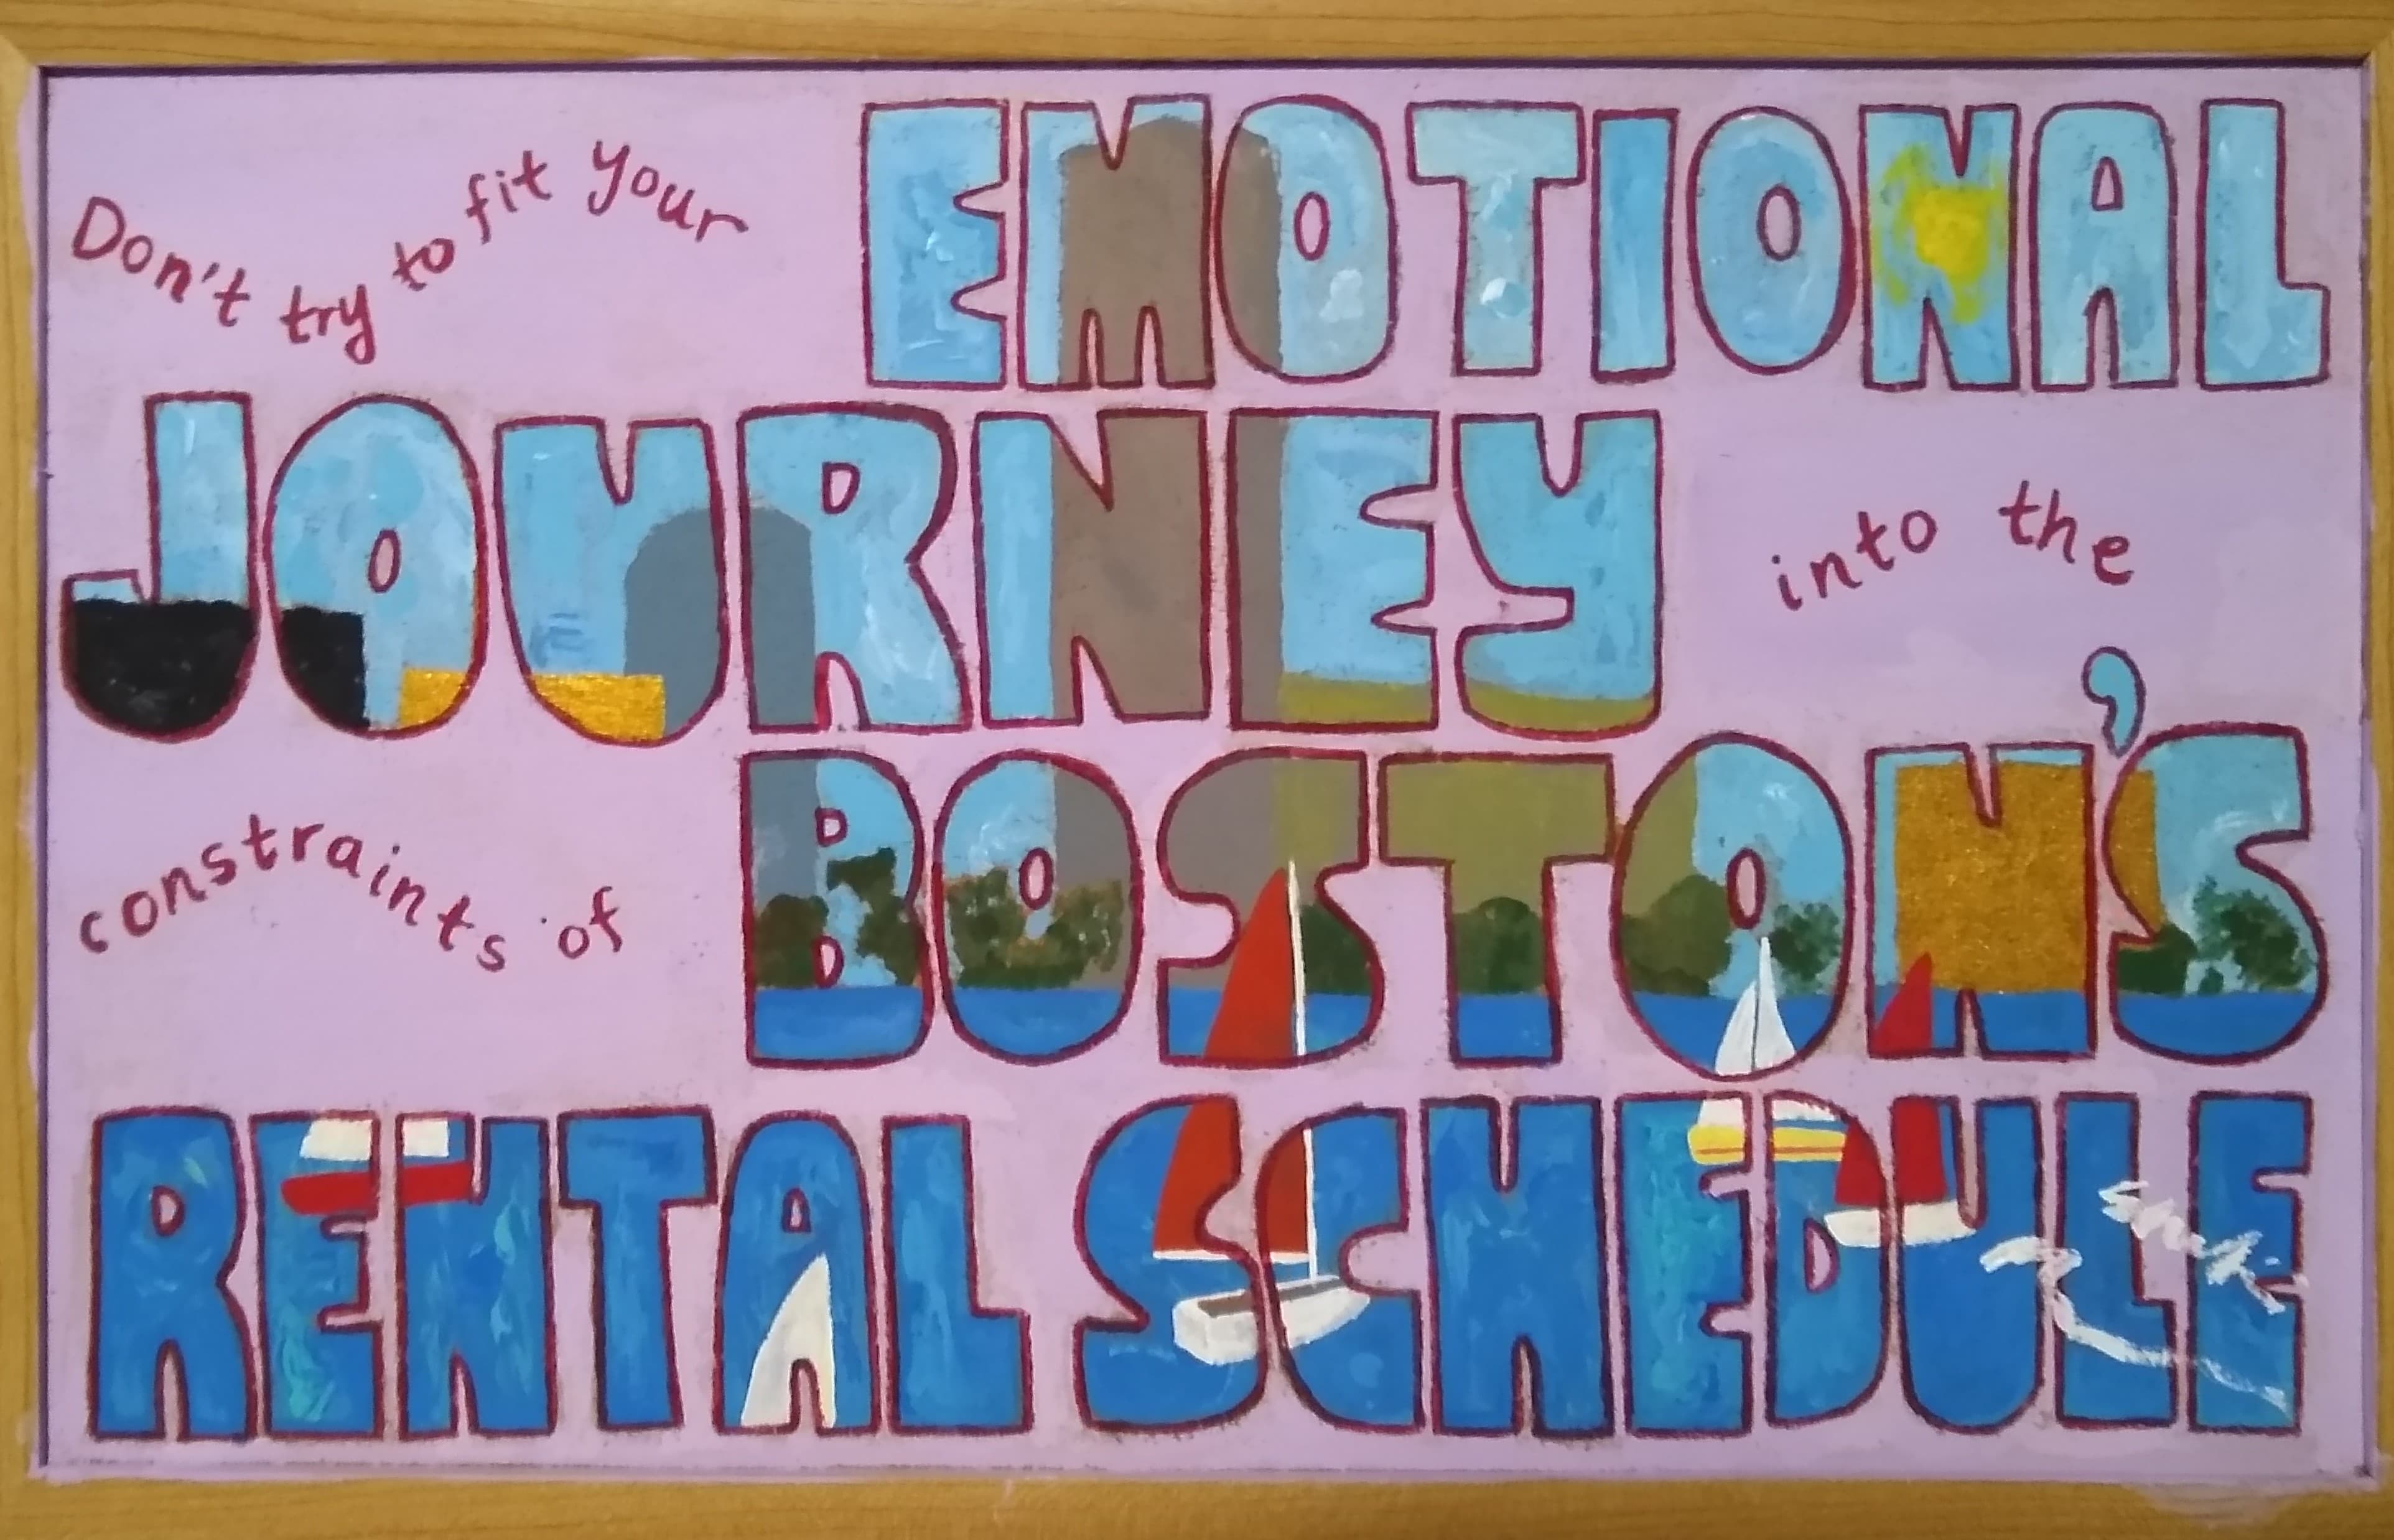 Don't try to fit your EMOTIONAL
JOURNEY into the
constraints of BOSTON'S
RENTAL SCHEDULE